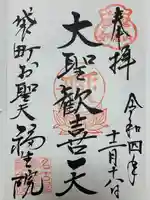 奉拝
令和四年
十二月十八日
大聖歓喜天
袋町お聖天
福生院